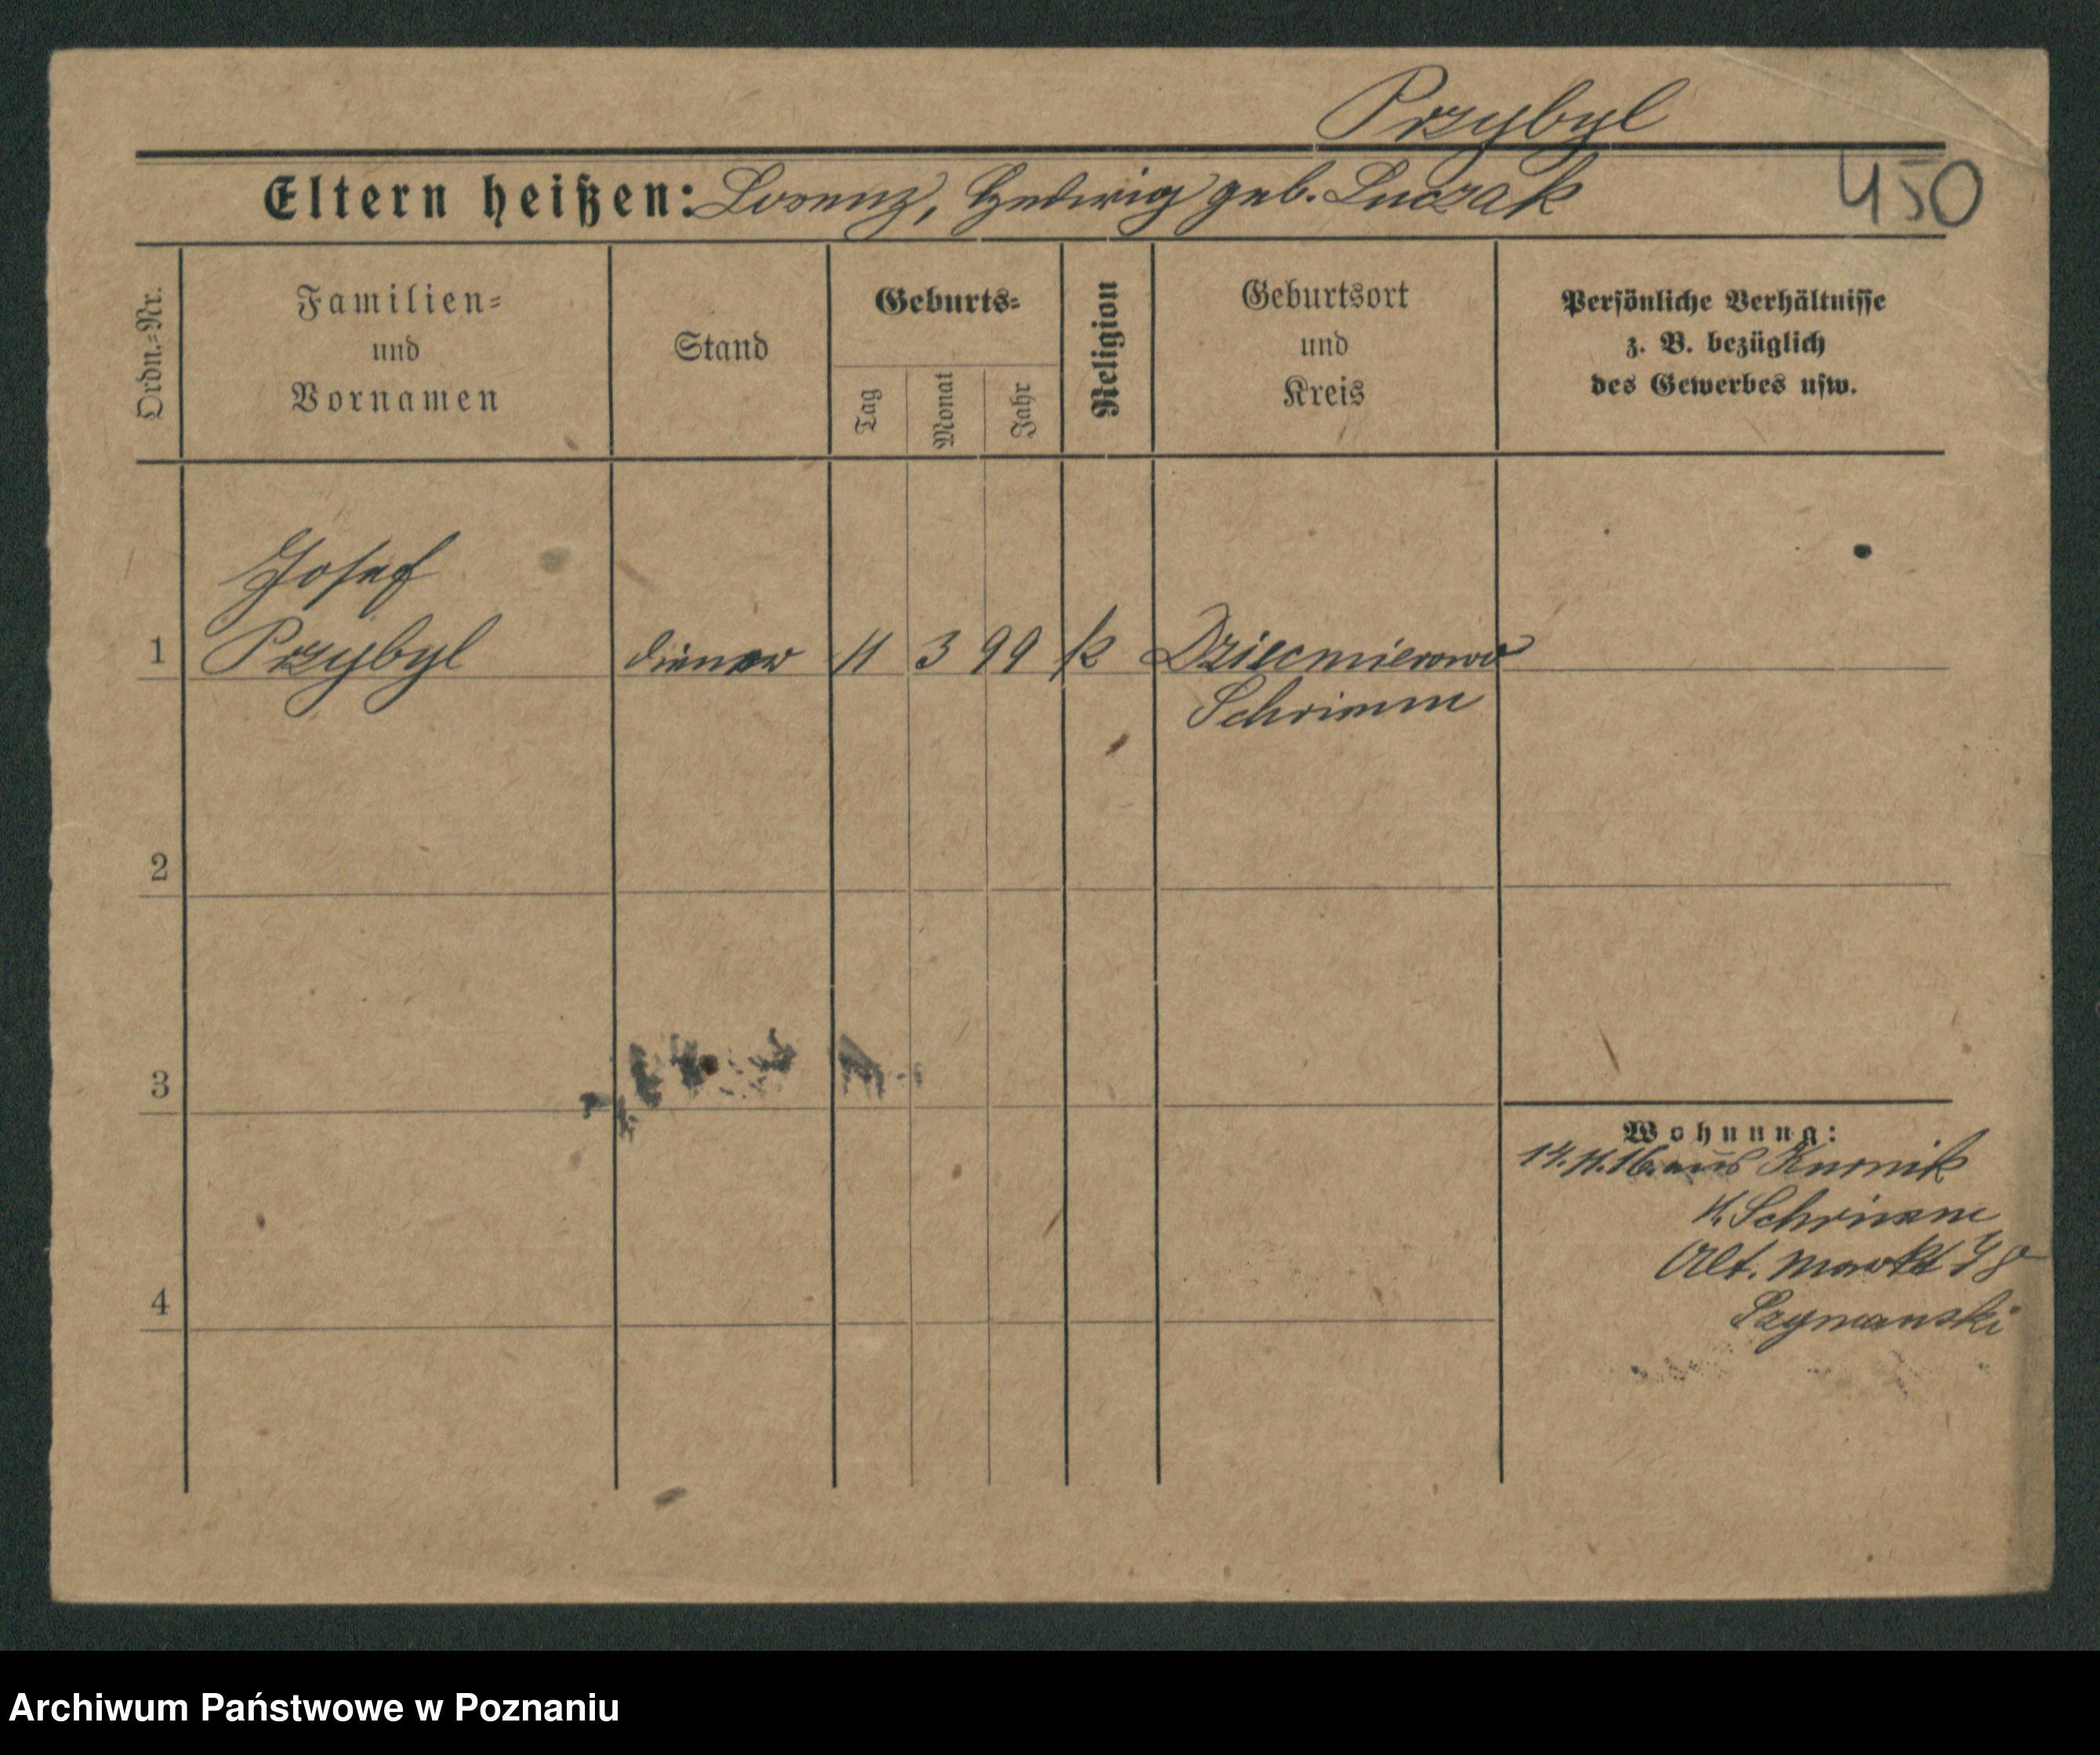 Przybyl
Eltern heißen: Lorenz, Hedwig geb. Luczak
450
Ordn.=Nr.
Familien=
und
Vornamen
Stand
Geburts=
Tag
Monat
Jahr
Religion
Geburtsort
und
Kreis
Persönliche Verhältnisse
z. B. bezüglich
des Gewerbes usw.
Josef
1 Przybyl diener 11 3 99 k Dziecmierowo
Schrimm
2
3
4
Wohnung:
14.11.16. aus Kurnik
K. Schrimm
Alt. Markt
Szymanski
Archiwum Państwowe w Poznaniu